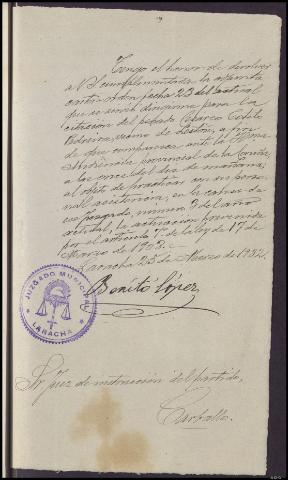 Tengo el honor de devolver
a V.S. cumplimentada la adjunta
carta-orden fecha 23 del actual
que se sirvió dirigirme para la
citación del penado Marco Cotelo
vecino de a fin
de que comparezca ante la
Audiencia provincial de la Coruña,
a las once del día de mañana,
al objeto de practicar con su perso-
nal asistencia, en la causa de
ese Juzgado, número 9 del año
actual, la prevenida
por el artículo 7º de la ley de 17 de
Marzo de 1908.
Laracha 25 de Marzo de 1932.
Benito López
JUZGADO MUNICIPAL
LARACHA
Sr. Juez de instrucción del partido,
Carballo.